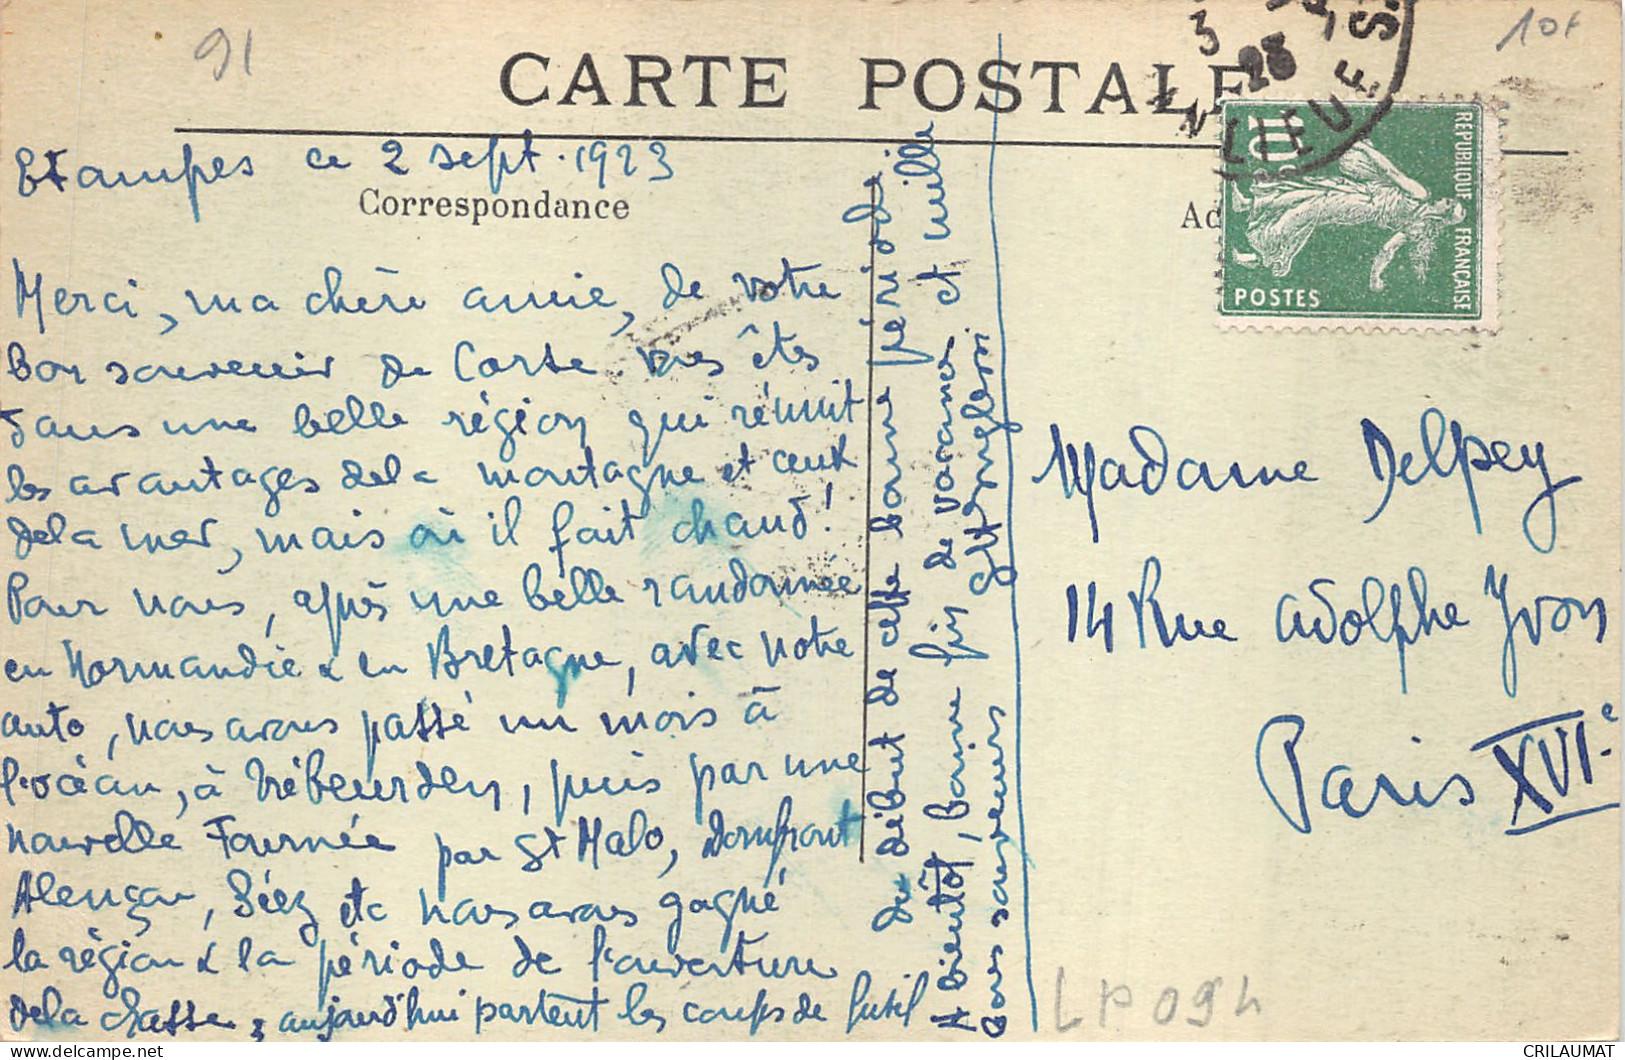 91
10f
CARTE POSTALE
3
23
LIEUE S.
Etampes ce 2 sept. 1923
Correspondance
Ad
10
REPUBLIQUE FRANÇAISE
POSTES
Merci, ma chère amie, de votre
bon souvenir de Corse vous êtes
dans une belle région qui réunit
les avantages de la montagne et ceux
de la mer, mais où il fait chaud!
Pour nous, après une belle randonnée
en Normandie & en Bretagne, avec notre
auto, nous avons passé un mois à
l'océan, à Trébeurden, puis par une
nouvelle Tournée par St Malo, Domfront
Alençon, Séez etc nous avons gagné
la région & la période de l'ouverture
de la chasse, & aujourd'hui partent les coups de fusil
du début de cette bonne période
A bientôt, bonne fin de vacances et mille
bons souvenirs
Madame Delpey
14 Rue Adolphe Yvon
Paris XVI.e
LP094
CRILAUMAT